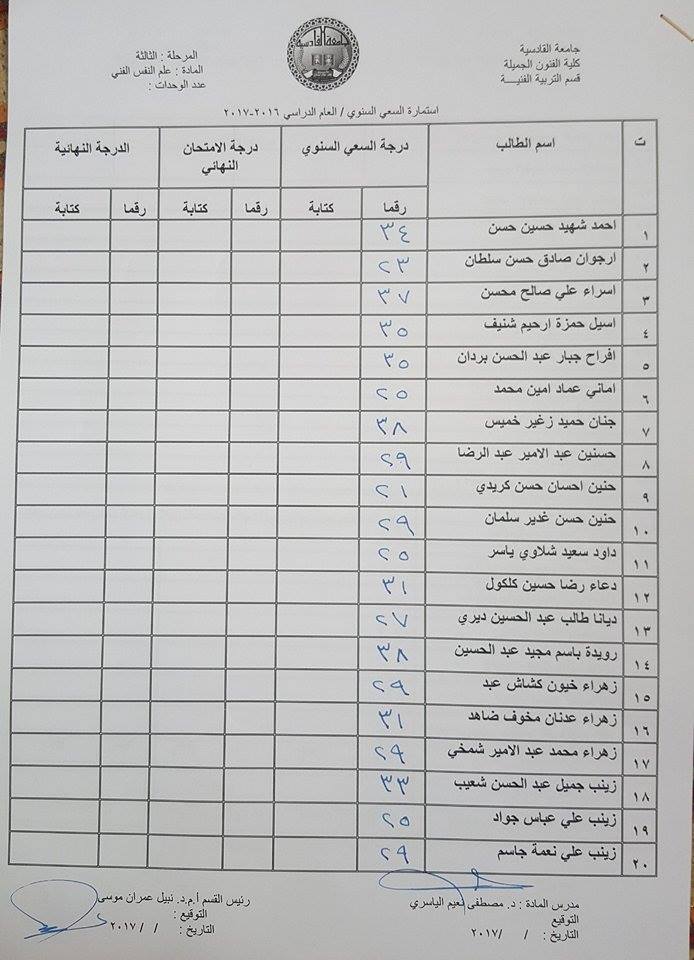 جامعة القادسية
كلية الفنون الجميلة
قسم التربية الفنيـــة
جامعة القادسية
المرحلة : الثالثة
المادة : علم النفس الفني
عدد الوحدات :
استمارة السعي السنوي / العام الدراسي ٢٠١٦-٢٠١٧
ت اسم الطالب درجة السعي السنوي درجة الامتحان النهائي الدرجة النهائية
رقما كتابة رقما كتابة رقما كتابة
١ احمد شهيد حسين حسن ٣٤
٢ ارجوان صادق حسن سلطان ٢٣
٣ اسراء علي صالح محسن ٣٧
٤ اسيل حمزة ارحيم شنيف ٣٥
٥ افراح جبار عبد الحسن بردان ٣٥
٦ اماني عماد امين محمد ٢٥
٧ جنان حميد زغير خميس ٣٨
٨ حسنين عبد الامير عبد الرضا ٢٩
٩ حنين احسان حسن كريدي ٢١
١٠ حنين حسن غدير سلمان ٢٩
١١ داود سعيد شلاوي ياسر ٢٥
١٢ دعاء رضا حسين كلكول ٣١
١٣ ديانا طالب عبد الحسين ديري ٢٧
١٤ رويدة باسم مجيد عبد الحسين ٣٨
١٥ زهراء خيون كشاش عبد ٢٩
١٦ زهراء عدنان مخوف ضاهد ٣١
١٧ زهراء محمد عبد الامير شمخي ٢٩
١٨ زينب جميل عبد الحسن شعيب ٣٣
١٩ زينب علي عباس جواد ٢٥
٢٠ زينب علي نعمة جاسم ٢٩
مدرس المادة : د. مصطفى نعيم الياسري
التوقيع
التاريخ : / / ٢٠١٧
رئيس القسم أ.م.د. نبيل عمران موسى
التوقيع :
التاريخ : / / ٢٠١٧